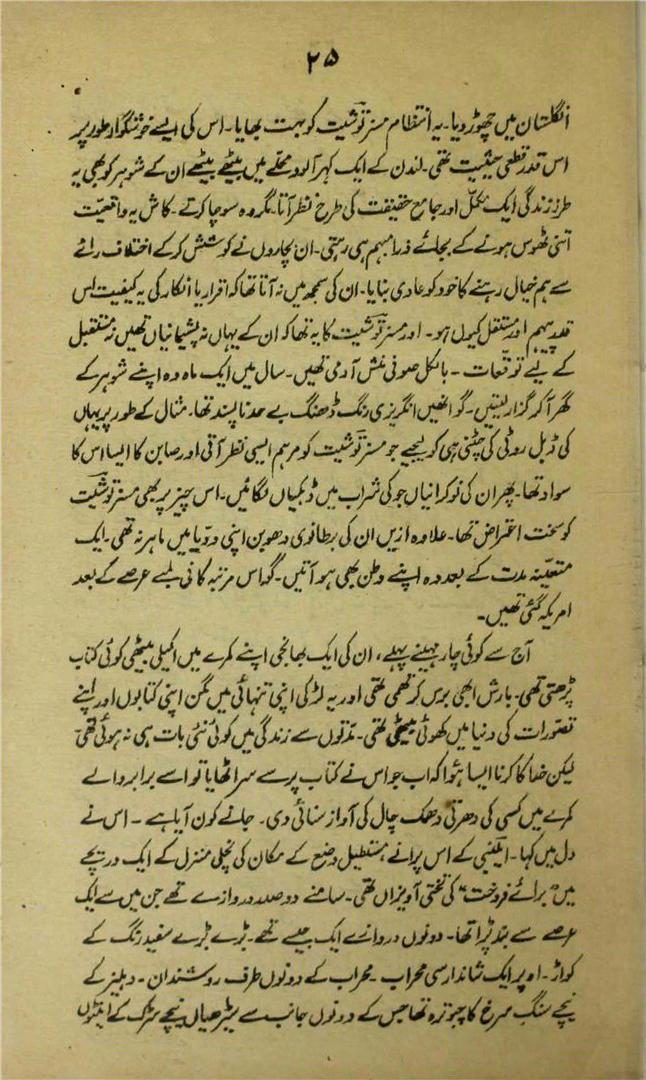 ۲۵
انگلستان میں چھوڑ دیا۔ یہ انتظام مسز توشیت کو بہت بھایا۔ اس کی ایسے خوشگوار طور پر
اس قدر قطعی حیثیت تھی۔ لندن کے ایک کہر آلود محلّے میں بیٹھے بیٹھے ان کے شوہر کو بھی یہ
طرزِ زندگی ایک مکمّل اور جامع حقیقت کی طرح نظر آتا۔ مگر وہ سوچا کرتے۔ کاش یہ واقعیّت
اتنی ٹھوس ہونے کے بجائے ذرا مبہم ہی رہتی۔ ان بچاروں نے کوشش کر کے اختلاف رائے
سے ہم خیال رہنے کا خود کو عادی بنایا۔ ان کی سمجھ میں نہ آتا تھا کہ اقرار یا انکار کی یہ کیفیت اس
قدر پیہم اور مستقل کیوں ہو۔ اور مسز توشیت کا یہ تھا کہ ان کے یہاں نہ پشیمانیاں تھیں نہ مستقبل
کے لیے توقعات ۔ بالکل صوفی منش آدمی تھیں۔ سال میں ایک ماہ وہ اپنے شوہر کے
گھر آ کر گزار لیتیں۔ گو انھیں انگریزی رنگ ڈھنگ بے حد نا پسند تھا۔ مثال کے طور پر یہاں
کی ڈبل روٹی کی چٹنی ہی کو لیجیے جو مسز توشیت کو مرہم ایسی نظر آتی اور صابن کا ایسا اس کا
سواد تھا۔ پھر ان کی نوکرانیاں جو کی شراب میں ڈبکیاں لگائیں۔ اس چیز پر بھی مسز توشیت
کو سخت اعتراض تھا۔ علاوہ ازیں ان کی برطانوی دھوبن اپنی ودّیا میں ماہر نہ تھی۔ ایک
متعیّنہ مدت کے بعد وہ اپنے وطن بھی ہو آتیں۔ گو اس مرتبہ کافی لمبے عرصے کے بعد
امریکہ گئی تھیں۔
آج سے کوئی چار مہینے پہلے، ان کی ایک بھانجی اپنے کمرے میں اکیلی بیٹھی کوئی کتاب
پڑھتی تھی۔ بارش ابھی برس کر تھمی تھی اور یہ لڑکی اپنی تنہائی میں مگن اپنی کتابوں اور اپنے
تصورات کی دنیا میں کھوئی بیٹھی تھی۔ مدّتوں سے زندگی میں کوئی نئی بات ہی نہ ہوئی تھی
لیکن خدا کا کرنا ایسا ہوا کہ اب جو اس نے کتاب پر سے سر اٹھایا تو اسے برابر والے
کمرے میں کسی کی دھرتی دھمک چال کی آواز سنائی دی۔ جانے کون آیا ہے ۔ اس نے
دل میں کہا۔ ایلبنی کے اس پرانے مستطیل وضع کے مکان کی نچلی منزل کے ایک دریچے
میں "برائے فروخت" کی تختی آویزاں تھی۔ سامنے دو صدر دروازے تھے جن میں سے ایک
عرصے سے بند پڑا تھا۔ دونوں دروازے ایک جیسے تھے۔ بڑے بڑے سفید رنگ کے
کواڑ۔ اوپر ایک شاندار سی محراب۔ محراب کے دونوں طرف روشندان ۔ دہلیز کے
نیچے سنگِ سرخ کا چبوترہ تھا جس کے دونوں جانب سے سیڑھیاں نیچے سڑک کے اینٹوں